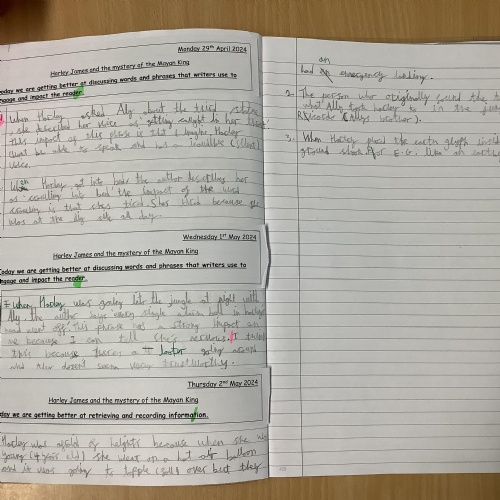 Monday 29th April 2024
Harley James and the mystery of the Mayan King
Today we are getting better at discussing words and phrases that writers use to
engage and impact the reader.
When Harley asked Ally about the third statue
she described her voice as 'getting caught in her throat'
this impact of this phrase is that I imagine Harley
wont be able to speak and has a inaudible (silent)
voice.
When Harley got into bed the author describes her
as 'crawling into bed' the impact of the word
crawling is that shes tired. Shes tired because she
was at the dig site all day.
Wednesday 1st May 2024
Harley James and the mystery of the Mayan King
Today we are getting better at discussing words and phrases that writers use to
engage and impact the reader.
When Harley was going into the jungle at night with
Ally the author says 'every single alarm bell in harleys
head went off'. This phrase has a strong impact on
me because I can tell she's nervous. I think
this because theres a looter going around
and Ally doesnt seem very trustworthy.
Thursday 2nd May 2024
Harley James and the mystery of the Mayan King
Today we are getting better at retrieving and recording information.
Harley was afraid of heights because when she was
young (4 year old) she went on a hot air balloon
and it was going to topple (fall) over but they
an
had emergency landing.
2. The person who originally found the
what Ally took harley to in the
Ricardo (Allys brother).
3. When Harley placed the earth glyph
ground shook for E.G. like an earth